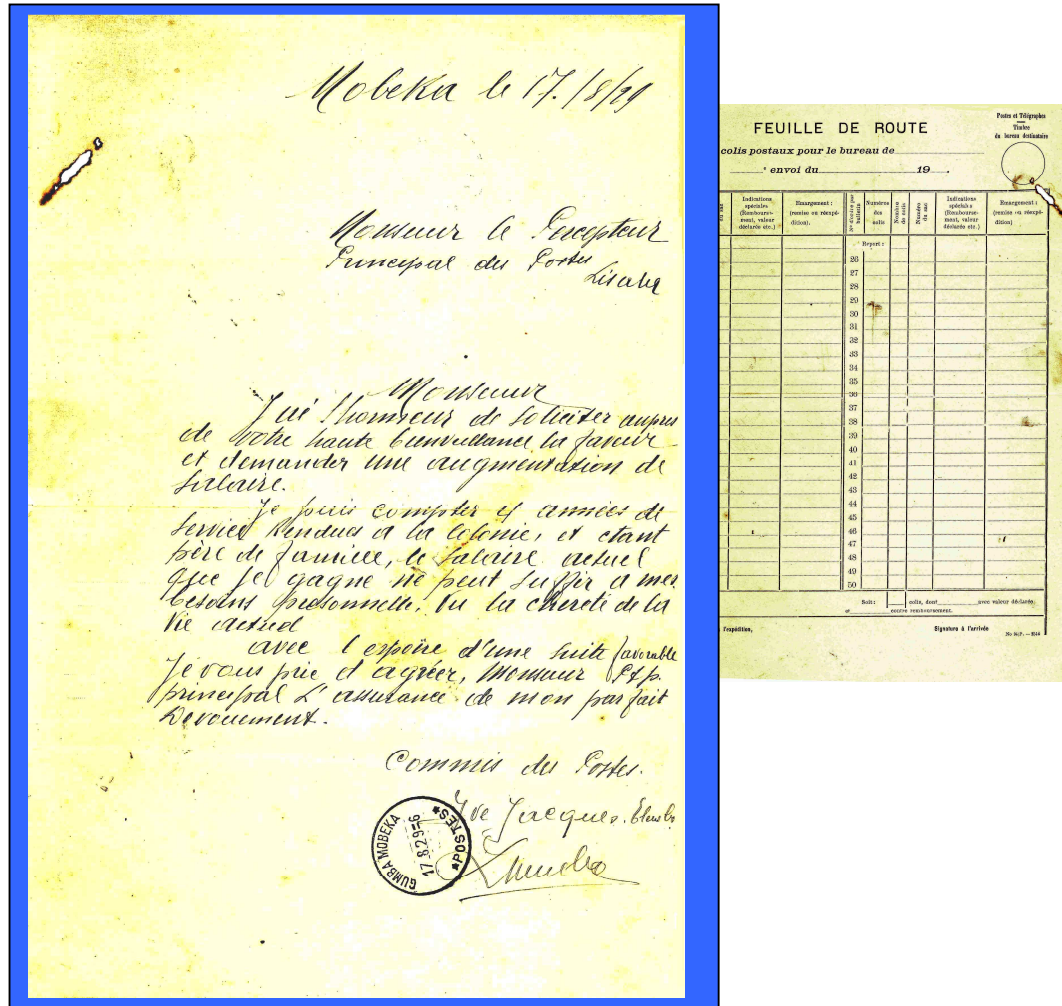 Mobeka le 17./8/29
Monsieur le Percepteur
Principal des Postes
Lisala
Monsieur
J'ai l'honneur de solliciter aupres
de votre haute bienveillance la faveur
et demander une augmentation de
salaire.
Je puis compter 4 années de
service rendues a la Colonie, et etant
père de famille, le salaire actuel
que je gagne ne peut suffir a mes
besoins personnelle, vu la chereté de la
vie actuel
avec l'espoire d'une suite favorable
Je vous prie d'agréer, Monsieur
principal l'assurance de mon parfait
Devouement.
Commis des Postes.
Jacques.
GUMBA MOBEKA
17.8.29 5-6
*POSTES*
Postes et Télégraphes
Timbre
du bureau destinataire
FEUILLE DE ROUTE
colis postaux pour le bureau de
envoi du 19 .
du sac
Indications
spéciales
(Rembourse-
ment, valeur
déclarée etc.)
Emargement :
(remise ou récépi-
dition).
N° d'ordre par
bulletin
Numéros
des
colis
Nombre
de colis
Numéro
du sac
Indications
spéciales
(Rembourse-
ment, valeur
déclarée etc.)
Emargement :
(remise ou récépi-
dition)
Report :
26
27
28
29
30
31
32
33
34
35
36
37
38
39
40
41
42
43
44
45
46
47
48
49
50
Soit : colis, dont avec valeur déclarée
et contre remboursement.
l'expédition,
Signature à l'arrivée